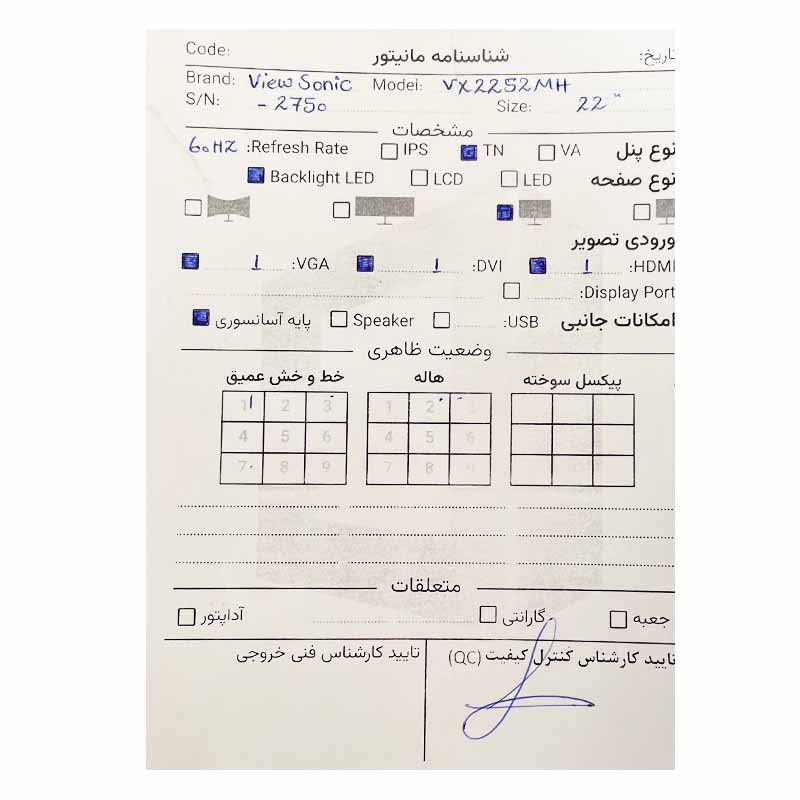 Code: شناسنامه مانیتور تاریخ:
Brand: ViewSonic Model: VX2252MH
S/N: - 2750 Size: 22"
مشخصات
نوع پنل VA TN IPS Refresh Rate: 60HZ
نوع صفحه LED LCD Backlight LED
ورودی تصویر
HDMI: 1 DVI: 1 VGA: 1
Display Port:
امکانات جانبی USB: Speaker پایه آسانسوری
وضعیت ظاهری
پیکسل سوخته هاله خط و خش عمیق
1 2 3 1 2 3
4 5 6 4 5 6
7 8 9 7 8 9
متعلقات
جعبه گارانتی آداپتور
تایید کارشناس کنترل کیفیت (QC) تایید کارشناس فنی خروجی